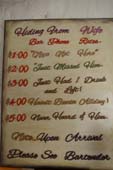 Hiding From Wife
Bar Phone Rates:
$1:00 "Not Here"
$2:00 "Just Missed Him"
$3:00 "Just Had 1 Drink
and Left!
$4:00 Hasn't Been in All day!
$5:00 Never Heard of Him
Note: Upon Arrival
Please See Bartender